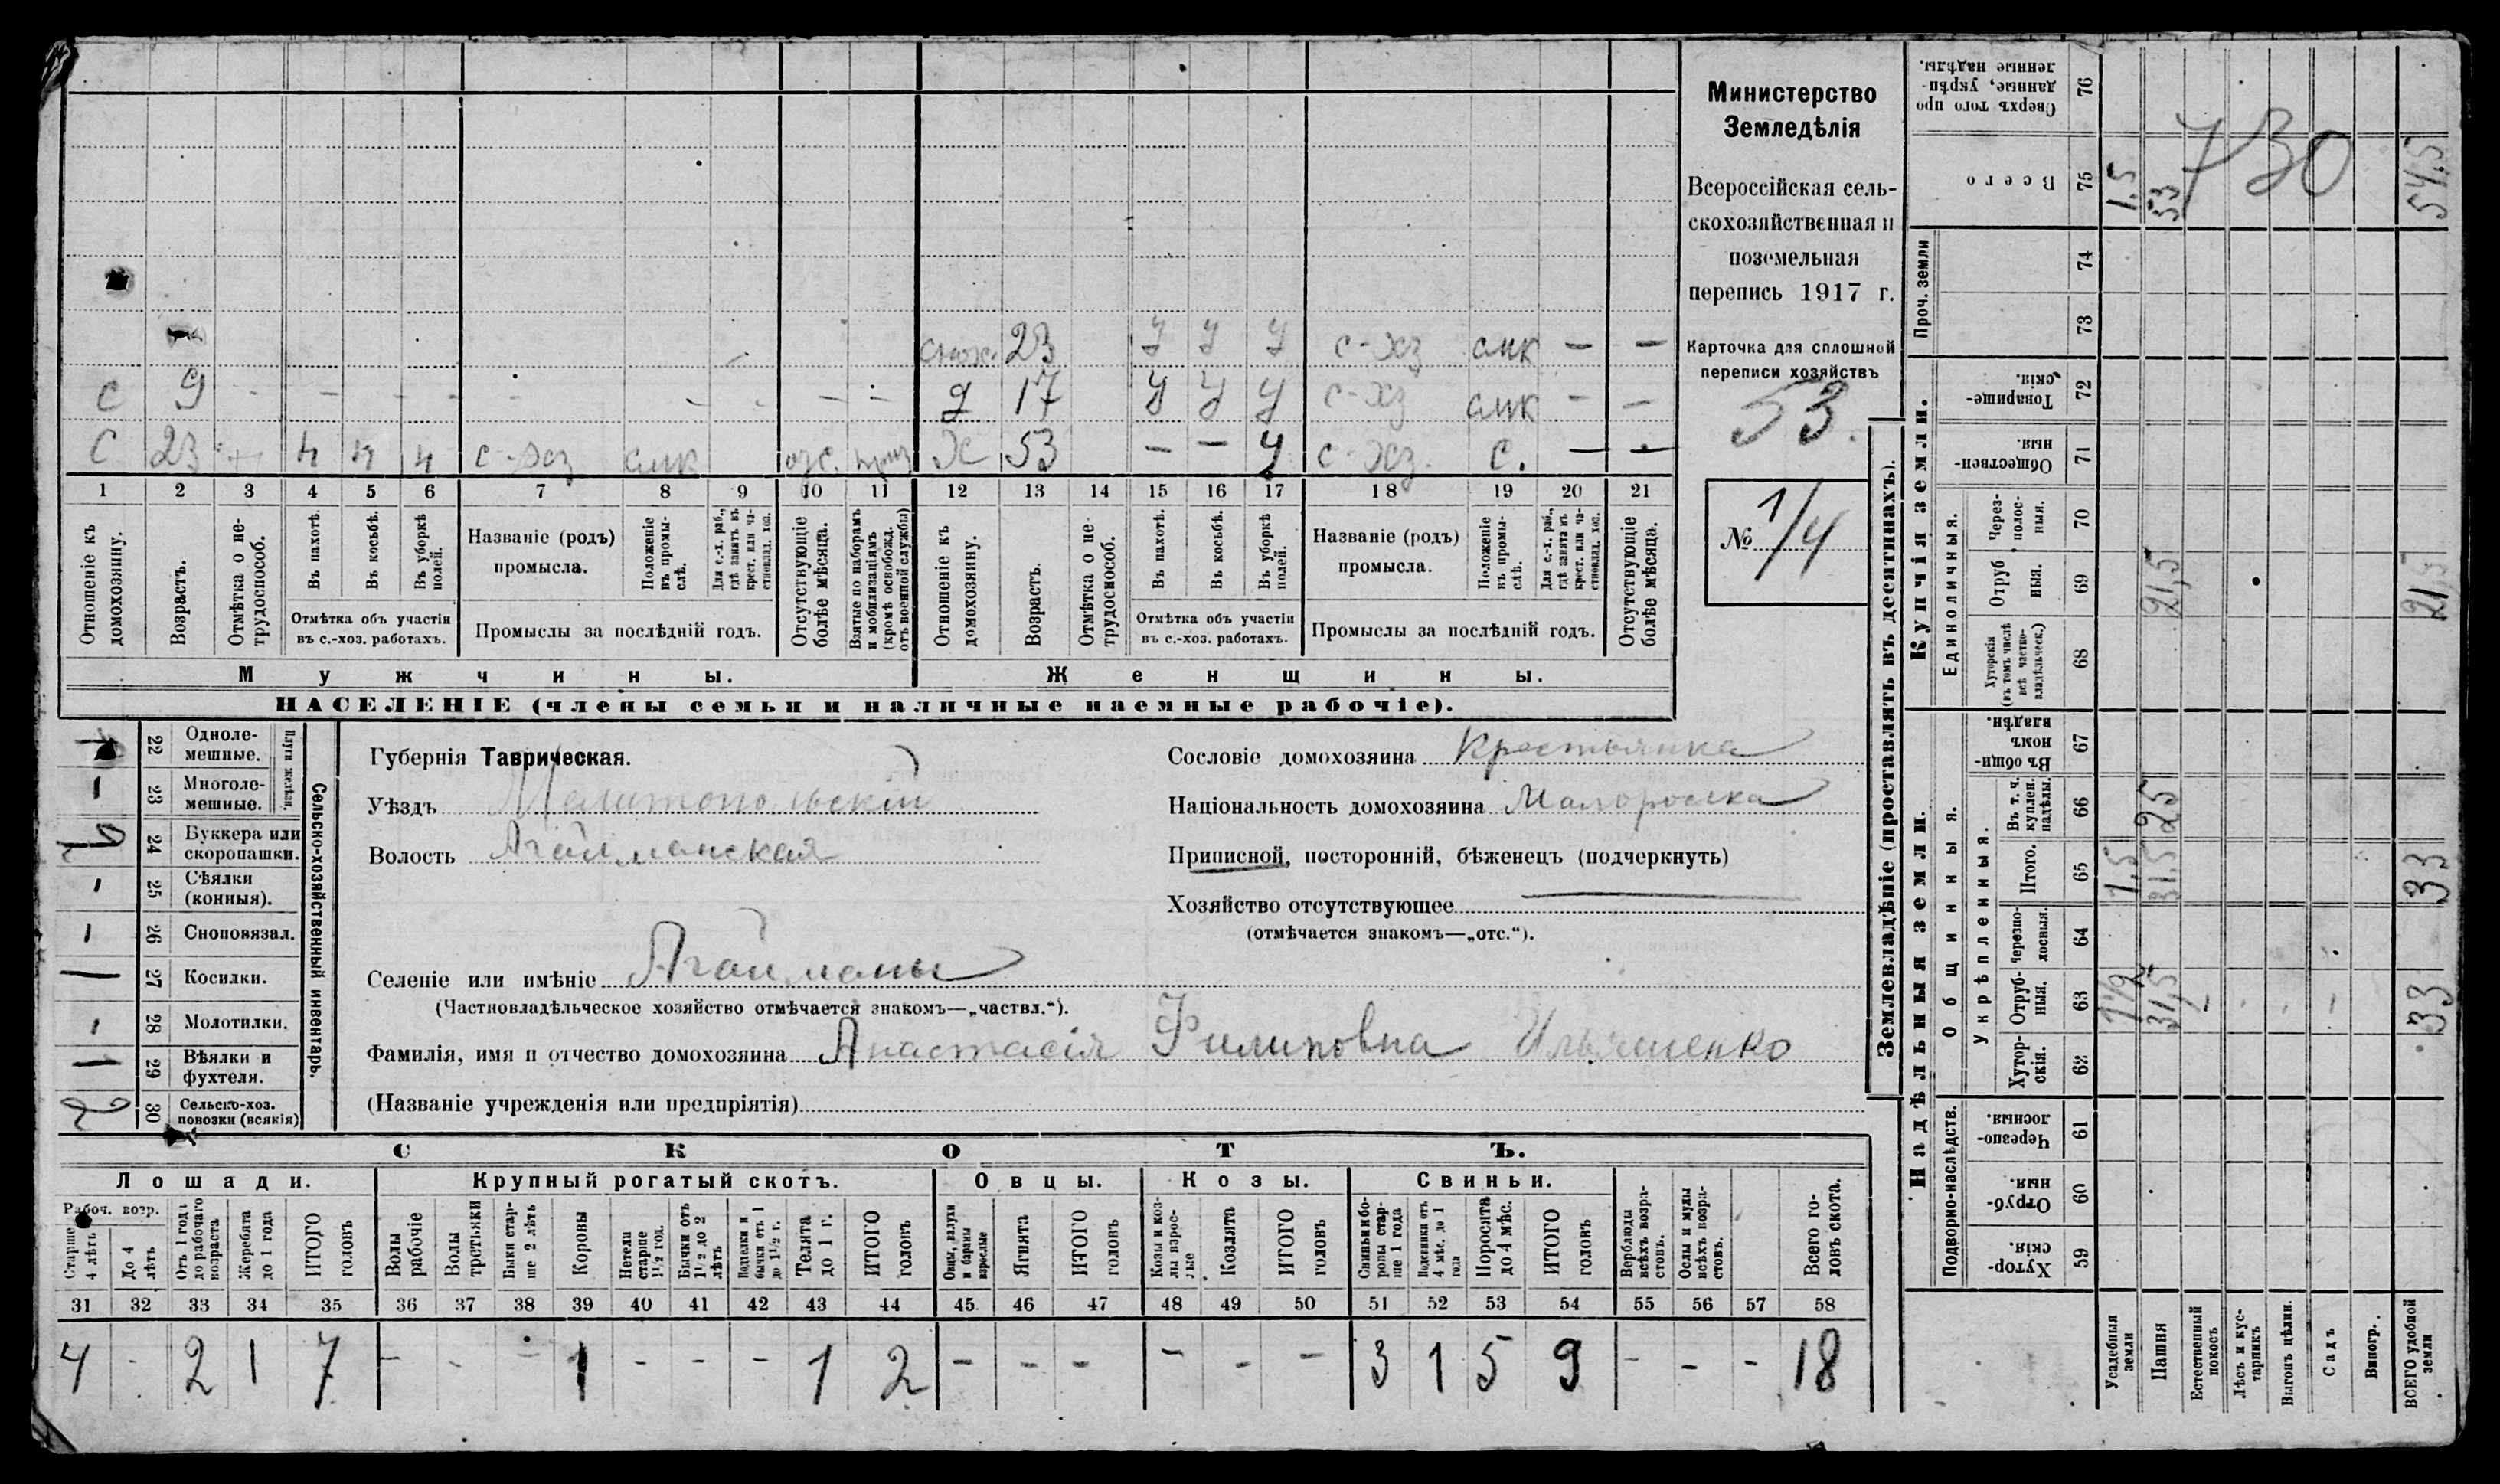 Министерство
Земледѣлія
Всероссійская сель-
скохозяйственная и
поземельная
перепись 1917 г.
Карточка для сплошной
переписи хозяйствъ
53.
№ 1/4
снох. 23 У У У с-хз смк — —
С 9 - - - - - - - - - д 17 У У У с-хз смк - —
С 23 + ч ч ч с-хз смк отс. Ж 53 — — У с-хз. с. — —
1 2 3 4 5 6 7 8 9 10 11 12 13 14 15 16 17 18 19 20 21
Отношеніе къ домохозяину.
Возрастъ.
Отмѣтка о не-трудоспособ.
Въ пахотѣ.
Въ косьбѣ.
Въ уборкѣ полей.
Отмѣтка объ участіи въ с.-хоз. работахъ.
Названіе (родъ) промысла.
Положеніе въ промы-слѣ.
Для с.-х. раб., гдѣ занятъ въ крест. или ча-стновлад. хоз.
Промыслы за послѣдній годъ.
Отсутствующіе болѣе мѣсяца.
Взятые по наборамъ и мобилизаціямъ (кромѣ освобожд. отъ военной службы)
Отношеніе къ домохозяину.
Возрастъ.
Отмѣтка о не-трудоспособ.
Въ пахотѣ.
Въ косьбѣ.
Въ уборкѣ полей.
Отмѣтка объ участіи въ с.-хоз. работахъ.
Названіе (родъ) промысла.
Положеніе въ промы-слѣ.
Для с.-х. раб., гдѣ занята въ крест. или ча-стновлад. хоз.
Промыслы за послѣдній годъ.
Отсутствующіе болѣе мѣсяца.
Мужчины. Женщины.
НАСЕЛЕНІЕ (члены семьи и наличные наемные рабочіе).
Сельско-хозяйственный инвентарь.
Плуги желѣзн.
22 Одноле-мешные.
23 Многоле-мешные.
24 Буккера или скоропашки.
25 Сѣялки (конныя).
26 Сноповязал.
27 Косилки.
28 Молотилки.
29 Вѣялки и фухтеля.
30 Сельско-хоз. повозки (всякія)
2
Губернія Таврическая.
Уѣздъ Мелитопольскій
Волость Агайманская
Сословіе домохозяина Крестьянка
Національность домохозяина Малоросска
Приписной, посторонній, бѣженецъ (подчеркнуть)
Хозяйство отсутствующее —
(отмѣчается знакомъ—„отс.“).
Селеніе или имѣніе Агайманы
(Частновладѣльческое хозяйство отмѣчается знакомъ—„частвл.“).
Фамилія, имя и отчество домохозяина Анастасія Филиповна Ильяшенко
(Названіе учрежденія или предпріятія)
СКОТЪ.
Лошади. Крупный рогатый скотъ. Овцы. Козы. Свиньи.
Рабоч. возр.
Старше 4 лѣтъ
До 4 лѣтъ
Отъ 1 года до рабочаго возраста
Жеребята до 1 года
ИТОГО головъ
Волы рабочіе
Волы третьяки
Быки стар-ше 2 лѣтъ
Коровы
Нетели старше 1½ год.
Бычки отъ 1½ до 2 лѣтъ
Подтелки и бычки отъ 1 до 1½ г.
Телята до 1 г.
ИТОГО головъ
Овцы, валухи и бараны взрослые
Ягнята
ИТОГО головъ
Козы и коз-лы взрос-лые
Козлята
ИТОГО головъ
Свиньи и бо-ровы стар-ше 1 года
Подсвинки отъ 4 мѣс. до 1 года
Поросята до 4 мѣс.
ИТОГО головъ
Верблюды всѣхъ возра-стовъ.
Ослы и мулы всѣхъ возра-стовъ.
Всего го-ловъ скота.
31 32 33 34 35 36 37 38 39 40 41 42 43 44 45 46 47 48 49 50 51 52 53 54 55 56 57 58
4 - 2 1 7 - - - 1 - - - 1 2 - - - - - - 3 1 5 9 - - - 18
Землевладѣніе (проставлять въ десятинахъ).
Надѣльныя земли. Купчія земли. Проч. земли
Подворно-наслѣдств. Общинныя. Укрѣпленныя. Единоличныя.
59 Хутор-скія.
60 Отруб-ныя.
61 Черезпо-лосныя.
62 Хутор-скія.
63 Отруб-ныя.
64 Черезпо-лосныя.
65 Итого.
66 Въ т. ч. куплен. надѣлы.
67 Въ общи-номъ владѣн.
68 Хуторскія (въ томъ числѣ всѣ частно-владѣльческ.)
69 Отруб-ныя.
70 Через-полос-ныя.
71 Обществен-ныя.
72 Товарище-скія.
73
74
75 Всего
76 Сверхъ того про-данные, укрѣп-ленные надѣлы.
Усадебныя земли 1½ 1,5 1,5
Пашня 31,5 31,5 25 21,5 53
Естественный покосъ
Лѣсъ и кус-тарникъ
Выгонъ цѣлин.
Садъ
Виногр.
ВСЕГО удобной земли 33 33 21,5 54,5
730